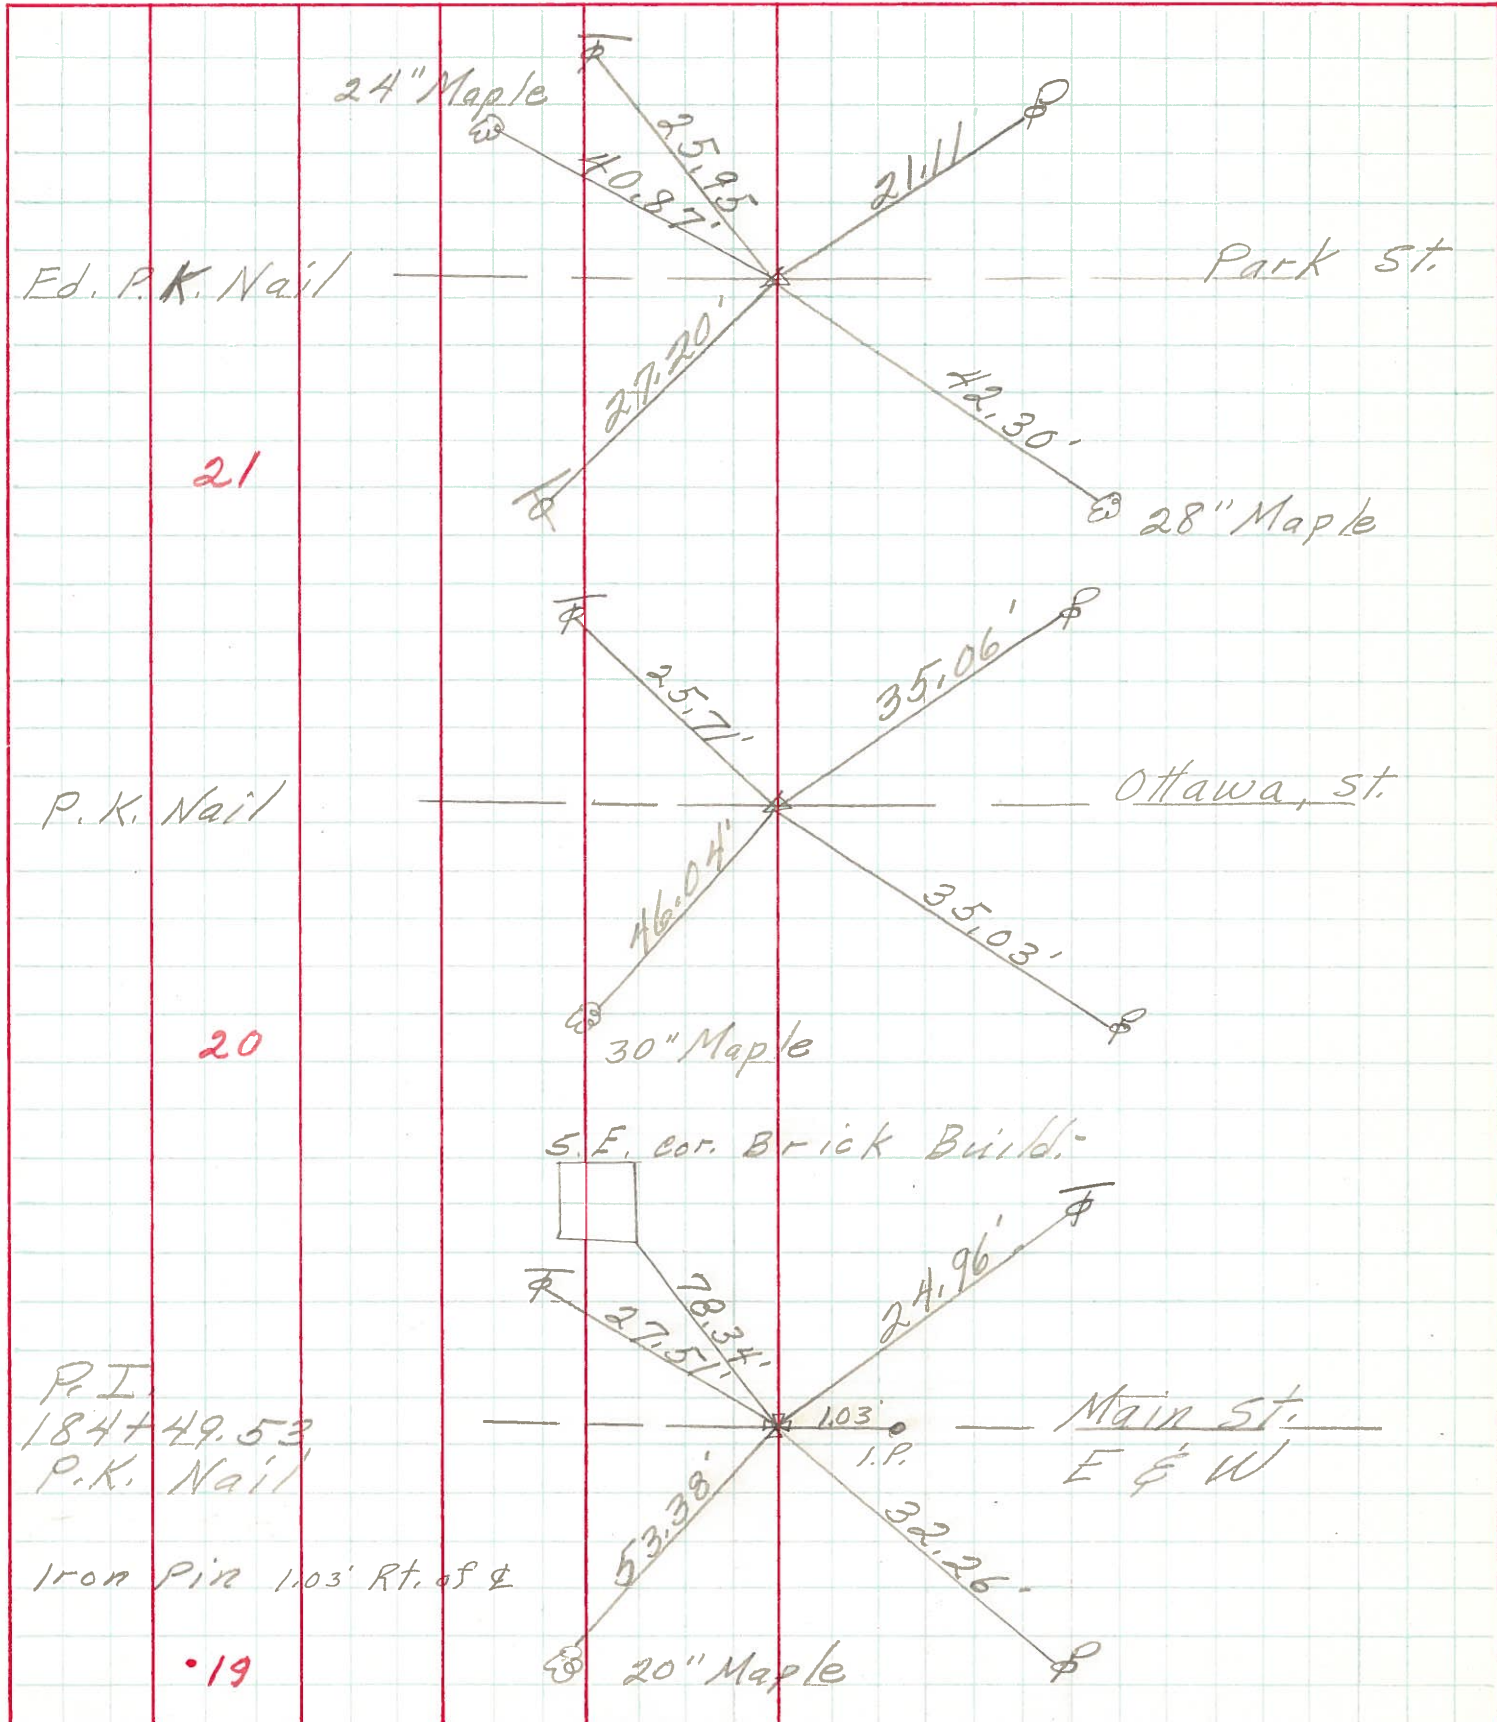 24" Maple
25.95
40.87'
21.11
Ed. P.K. Nail
Park St.
27.20'
42.30'
21
28" Maple
25.71'
35.06'
P.K. Nail
Ottawa, St.
46.04'
35.03'
20
30" Maple
S.E. cor. Brick Build.
78.34'
27.51'
24.96'
P.I.
184+49.53
P.K. Nail
1.03'
I.P.
Main St.
E & W
53.38'
32.26'
Iron Pin 1.03' Rt. of ℄
•19
20" Maple